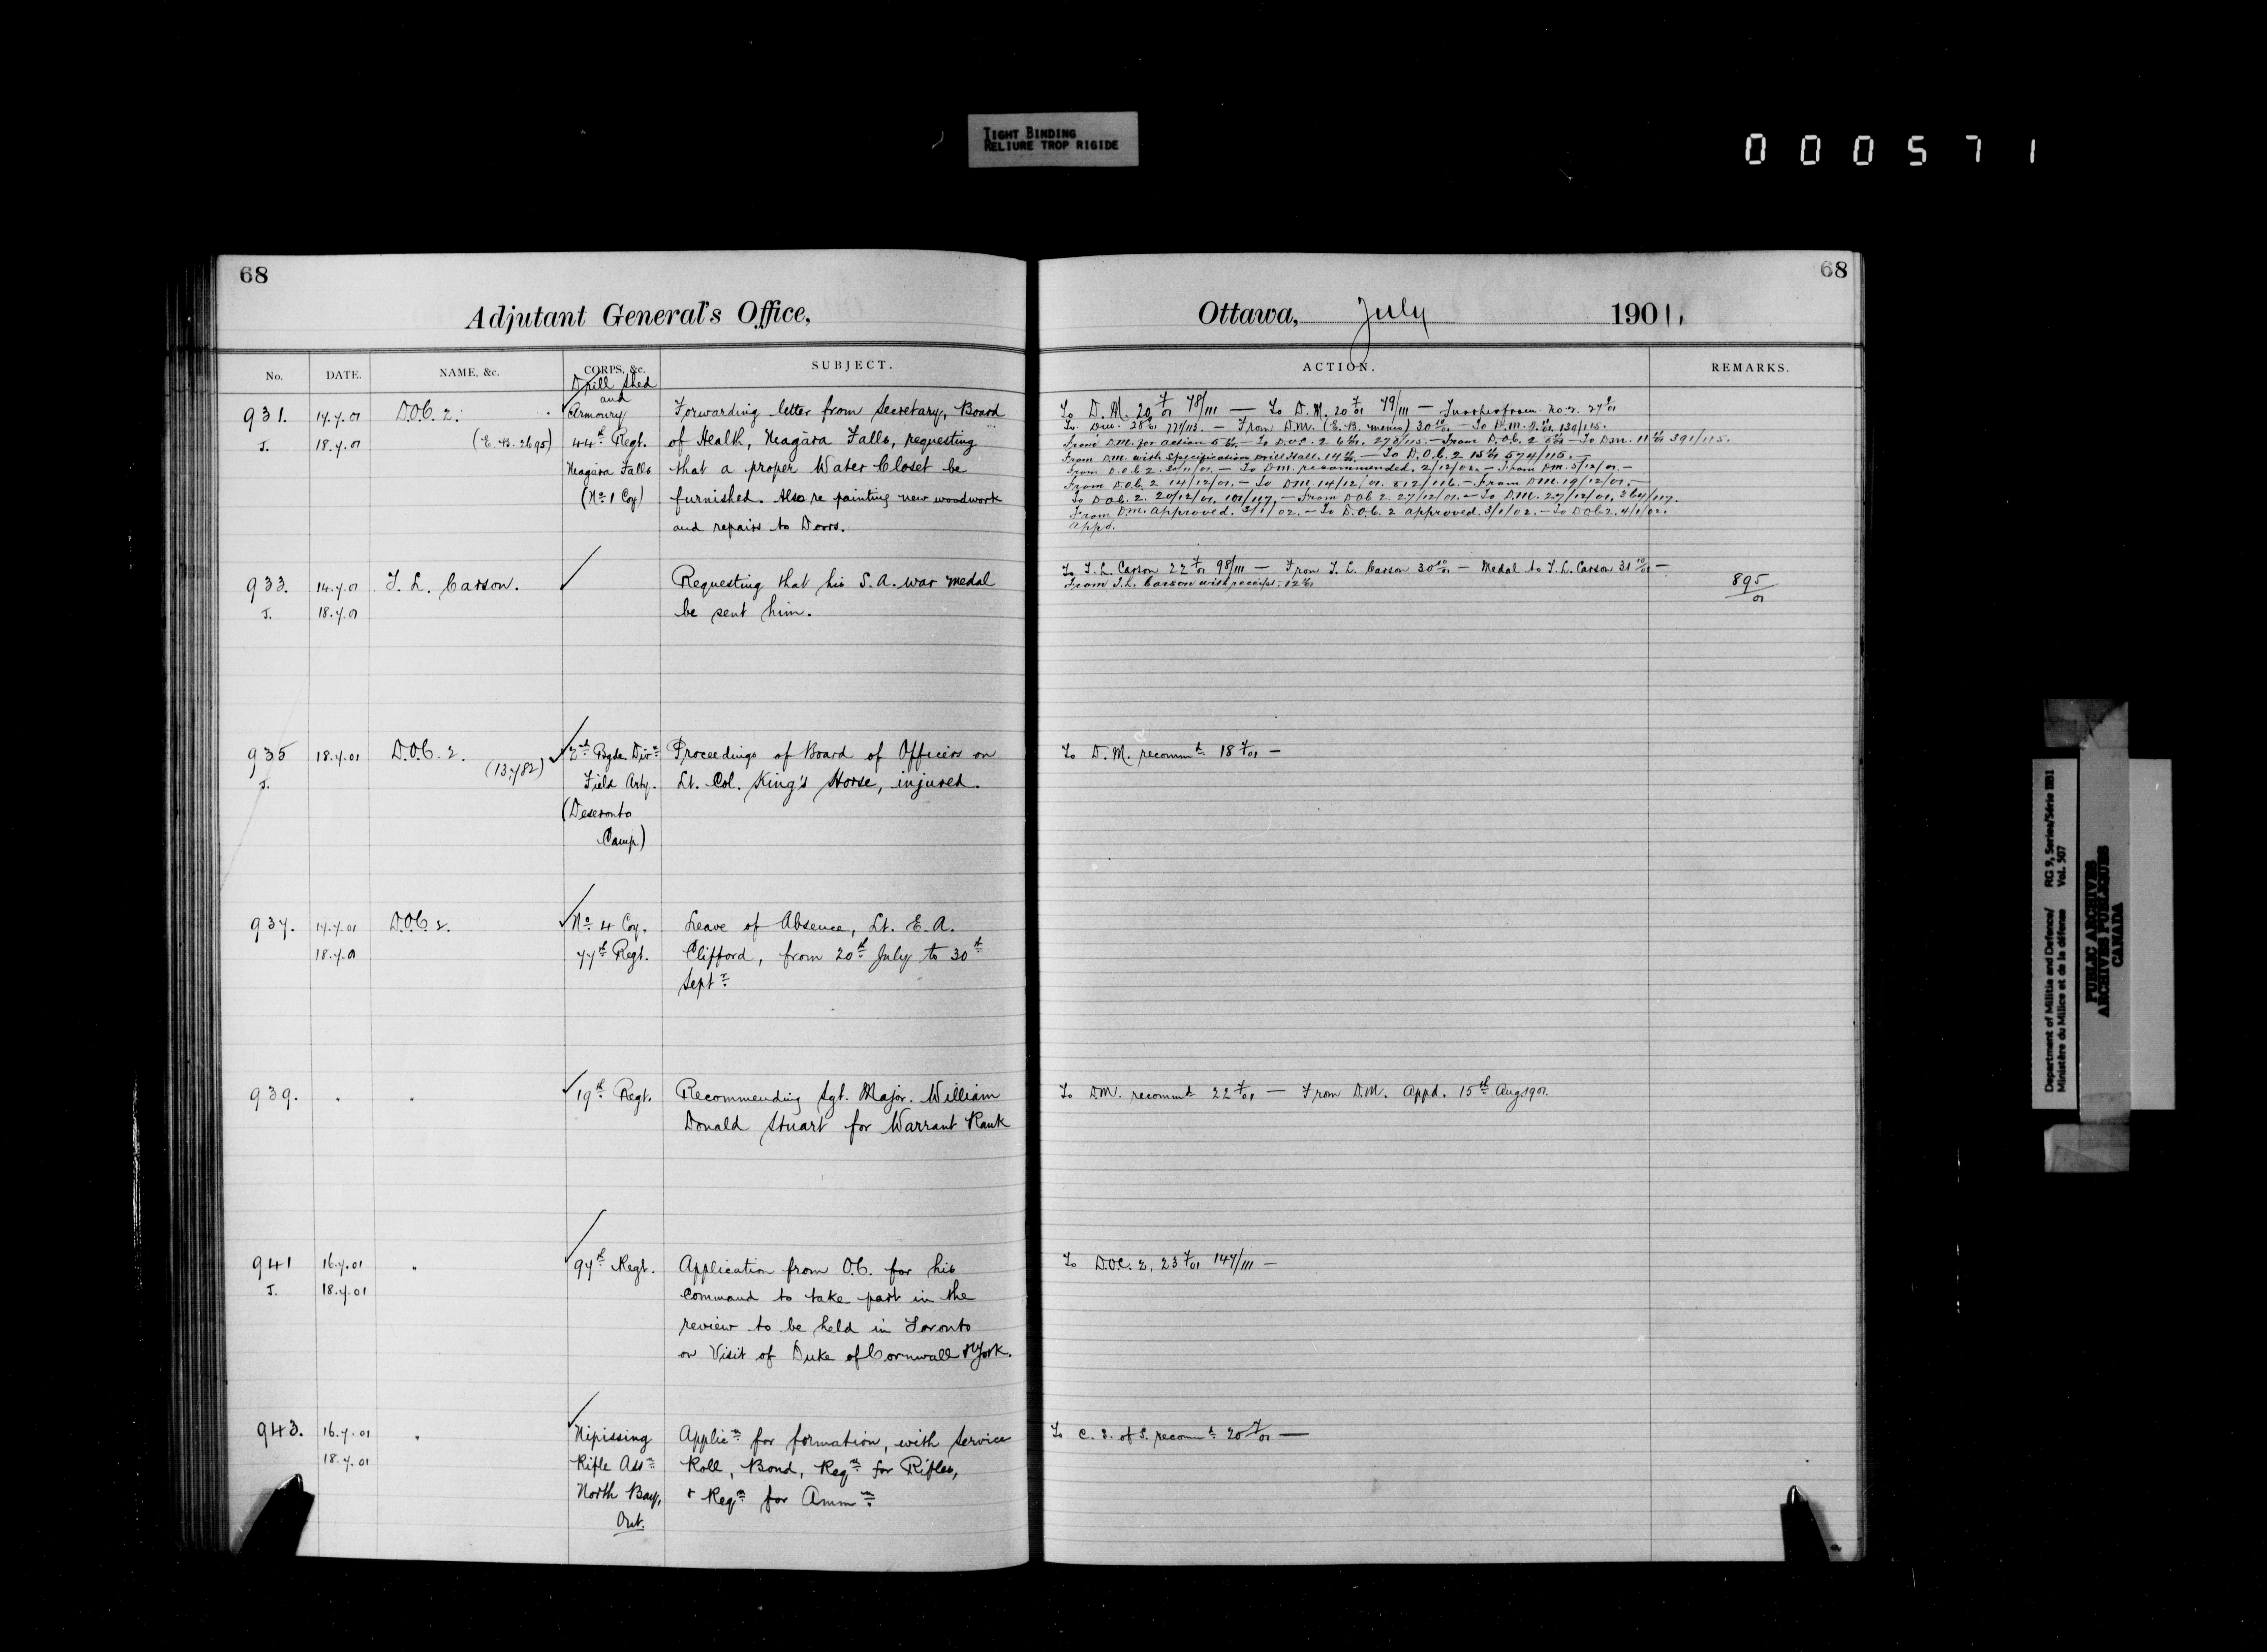 TIGHT BINDING
RELIURE TROP RIGIDE
000571
68
Adjutant General's Office,
No. DATE. NAME, &c. CORPS, &c. SUBJECT.
931. 17.7.01 D.O.C. 2. Drill Shed and Armoury Forwarding letter from Secretary, Board
J. 18.7.01 (E.B. 2695) 44th Regt. of Health, Niagara Falls, requesting
Niagara Falls that a proper Water Closet be
(No 1 Coy) furnished. Also re painting new woodwork
and repairs to Doors.
933. 17.7.01 T. L. Carson. Requesting that his S.A. war medal
J. 18.7.01 be sent him.
935 18.7.01 D.O.C. 2. 2nd Bgde. Divn Proceedings of Board of Officers on
J. (13,782) Field Arty. Lt. Col. King's Horse, injured.
(Deseronto
Camp)
937. 17.7.01 D.O.C. 2. No 4 Coy. Leave of Absence, Lt. E. A.
18.7.01 77th Regt. Clifford, from 20th July to 30th
Sept r
939. " " 19th Regt. Recommending Sgt. Major. William
Donald Stuart for Warrant Rank
941 16.7.01 " 97th Regt. Application from O.C. for his
J. 18.7.01 Command to take part in the
review to be held in Toronto
on Visit of Duke of Cornwall & York.
943. 16.7.01 " Nipissing Applicn for formation, with Service
18.7.01 Rifle Assn Roll, Bond, Reqn for Rifles,
North Bay, & Reqn for Ammn
Ont.
68
Ottawa, July 1901.
ACTION. REMARKS.
To D.M. 20 7/01 78/111 — To D.M. 20 7/01 79/111 —
From D.M. (E.B. memo) 30 10/01 — To D.M.
From D.M. for action — To D.O.C. 2 — From D.O.C. 2 — To D.M. 391/115.
From D.M. with Specification Drill Hall. — To D.O.C. 2 574/115. —
From D.O.C. 2 — To D.M. recommended. 2/12/02. — From D.M. 5/12/01. —
From D.O.C. 2 14/12/01. — To D.M. 14/12/01. 812/116. — From D.M. 19/12/01. —
To D.O.C. 2. 20/12/01, 101/117, — From D.O.C. 2. 27/12/01. — To D.M. 27/12/01, 364/117.
From D.M. approved. 3/1/02. — To D.O.C. 2 approved. 3/1/02. — To D.O.C. 2. 4/1/02.
Appd.
To T.L. Carson 22 7/01 98/111 — From T.L. Carson 30 10/01 — Medal to T.L. Carson 31 10/01 —
From T.L. Carson with receipt,
895/01
To D.M. recommd 18 7/01 —
To D.M. recommd 22 7/01 — From D.M. Appd. 15th Aug 1901.
To D.O.C. 2, 23 7/01 147/111 —
To C.S. of S. recommd 20 7/01 —
Department of Militia and Defence/ RG 9, Series/Série IIB1
Ministère du Milice et de la défense Vol. 507
PUBLIC ARCHIVES
ARCHIVES PUBLIQUES
CANADA